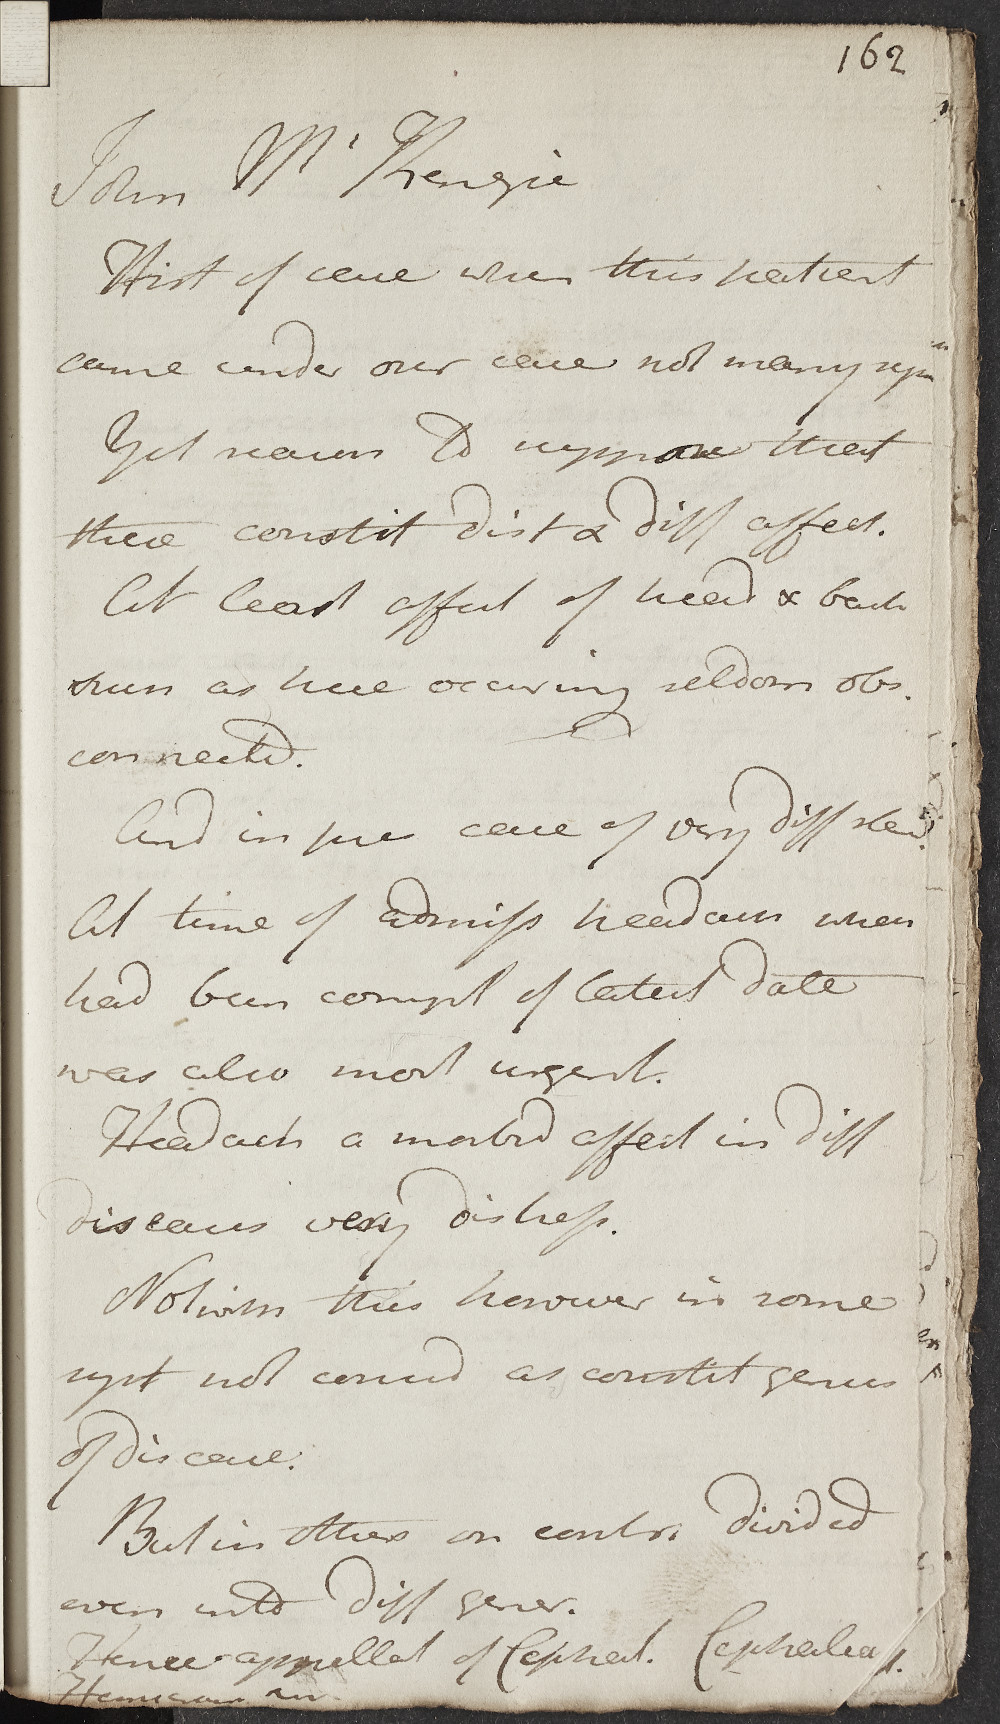 162
John Mc Kenzie
Hist of case when this patient
came under our care not many sym
Yet reason to suppose that
these constit dist & diff affect.
At least affect of head & bach
such as here occuring seldom obs.
connected.
And in pres case of very diff stand.
At time of admiss headach when
had been compl of latest date
was also most urgent.
Headach a morbid affect in diff
diseases very distress.
Notwith this however in some
syst not consid as constit genus
of disease.
But in others on contr. divided
even into diff gener.
Hence appellat of Cephal. Cephalea
Hemicrania